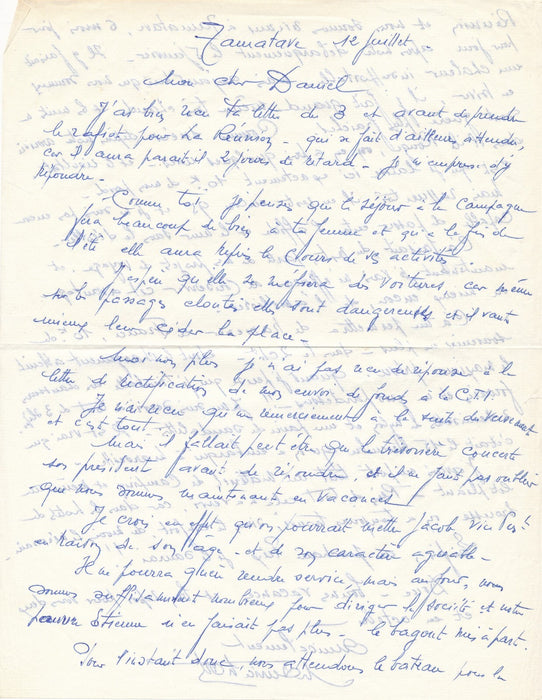 Tamatave 12 juillet
Mon cher Daniel
J'ai bien reçu ta lettre du 3 et avant de prendre
le rafiot pour La Réunion - qui se fait d'ailleurs attendre,
car il aura paraît il 2 jours de retard - Je m'empresse d'y
répondre -
Comme toi je pense que le séjour à la Campagne
fera beaucoup de bien à ta femme et qu'à la fin de
l'été elle aura repris le cours de ses activités
J'espère qu'elle se méfiera des voitures car même
sur les passages cloutés elles sont dangereuses et il vaut
mieux leur céder la place -
Moi non plus - je n'ai pas reçu de réponse à la
lettre de rectification de mes envois de fonds à la
Je n'ai reçu qu'un remerciement à la suite du versement
et c'est tout.
Mais il fallait peut être que la trésorière concerte
son président avant de répondre, et il ne faut pas oublier
que nous sommes maintenant en vacances
Je crois en effet qu'on pourrait mettre Jacob Vic Pst
en raison de son âge - et de son caractère agréable -
Il ne pourra guère rendre service, mais au fond, nous
sommes suffisamment nombreux pour diriger la société et notre
pauvre Etienne n'en faisait pas plus - le bagout mis à part.
Pour l'instant donc, nous attendons le bateau pour la